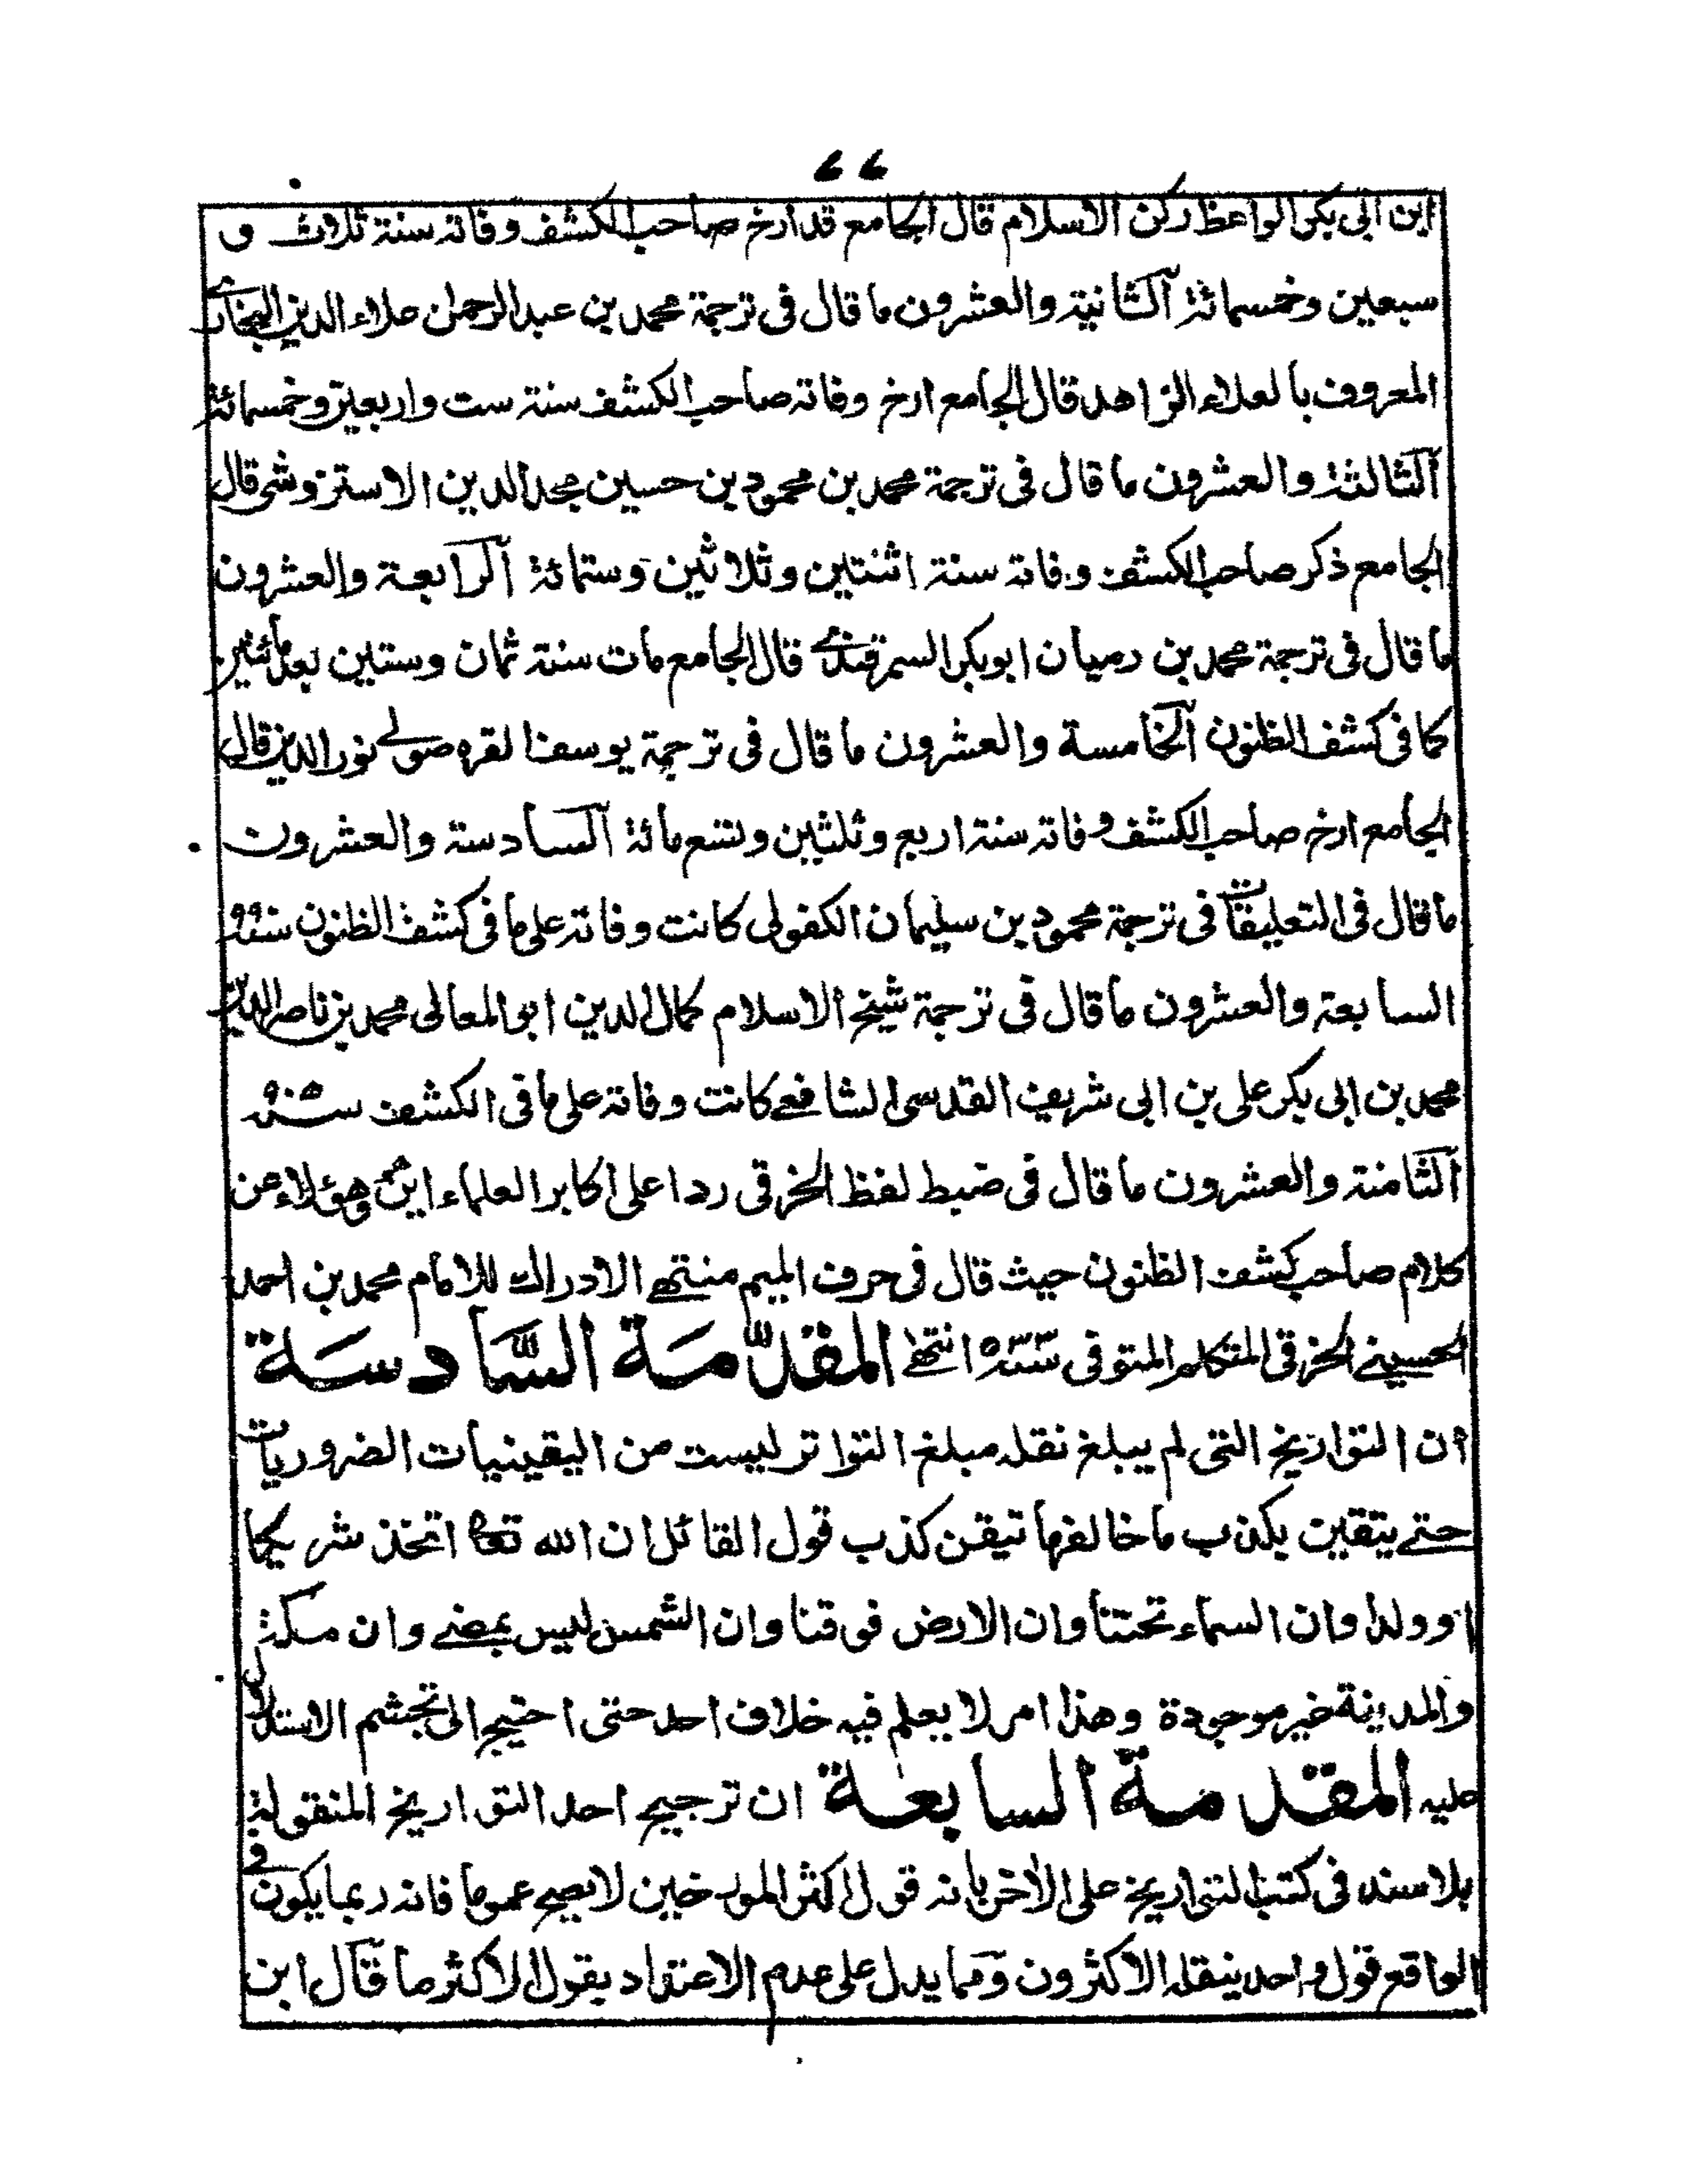 ابن ابى بكر الواعظ ركن الاسلام قال الجامع قد ارخ صاحب الكشف وفاته سنة ثلاث و
سبعين وخمسمائة الثانية والعشرون ما قال فى ترجمة محمد بن عبد الرحمن علاء الدين البخارى
المعروف بالعلاء الزاهد قال الجامع ارخ وفاته صاحب الكشف سنة ست واربعين وخمسمائة
الثالثة والعشرون ما قال فى ترجمة محمد بن محمود بن حسين مجد الدين الاستروشى قال
الجامع ذكر صاحب الكشف وفاته سنة اثنتين وثلاثين وستمائة الرابعة والعشرون
ما قال فى ترجمة محمد بن رميان ابو بكر السمرقندے قال الجامع مات سنة ثمان وستين بعد مائتين
كما فى كشف الظنون الخامسة والعشرون ما قال فى ترجمة يوسف القره صولے نور الدين قال
الجامع ارخ صاحب الكشف وفاته سنة اربع وثلثين وتسعمائة السادسة والعشرون
ما قال فى التعليقات فى ترجمة محمود بن سليمان الكفوى كانت وفاته على ما فى كشف الظنون
السابعة والعشرون ما قال فى ترجمة شيخ الاسلام كمال الدين ابو المعالى محمد بن ناصر الدين
محمد بن ابى بكر على بن ابى شريف القدسى الشافعے كانت وفاته على ما فى الكشف
الثامنة والعشرون ما قال فى ضبط لفظ الخرقى ردا على اكابر العلماء اين هم وهؤلاء عن
كلام صاحب كشف الظنون حيث قال فى حرف الميم منتهے الادراك للامام محمد بن احمد
الحسينے الخرقى المتكلم المتوفى انتهے المقدّمَة السَّادسَة
ان التواريخ التى لم يبلغ نقله مبلغ التواتر ليست من اليقينيات الضروريات
حتے يتقين بكذب ما خالفها تيقن كذب قول القائل ان الله تعا اتخذ شريكا
او ولدا وان السماء تحتنا وان الارض فوقنا وان الشمس ليس بمضے وان مكة
والمدينة غير موجودة وهذا امر لا يعلم فيه خلاف احد حتى احتيج الى تجشم الاستدلال
عليه المقدمة السابعة ان ترجيح احد التواريخ المنقولة
بلا سند فى كتب التواريخ على الآخر بانه قول اكثر المورخين لا يصح عموما فانه ربما يكون فے
الواقع قول واحد ينقله الاكثرون ومما يدل على عدم الاعتداد بقول الاكثر ما قال ابن